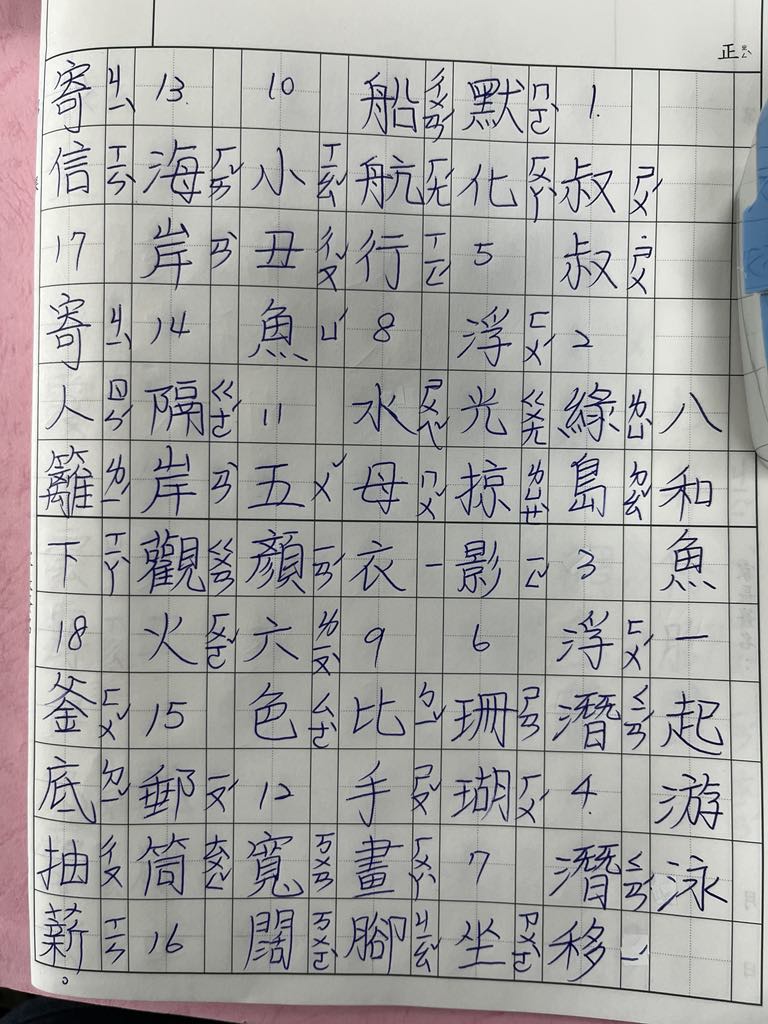 正
八和魚一起游泳
1. 叔ㄕㄨˊ叔˙ㄕㄨ 2 綠ㄌㄩˋ島ㄉㄠˇ 3 浮ㄈㄨˊ潛ㄑㄧㄢˊ 4. 潛ㄑㄧㄢˊ移ㄧˊ
默ㄇㄛˋ化ㄏㄨㄚˋ 5 浮ㄈㄨˊ光ㄍㄨㄤ掠ㄌㄩㄝˋ影ㄧㄥˇ 6 珊ㄕㄢ瑚ㄏㄨˊ 7 坐ㄗㄨㄛˋ
船ㄔㄨㄢˊ航ㄏㄤˊ行ㄒㄧㄥˊ 8 水ㄕㄨㄟˇ母ㄇㄨˇ衣ㄧ 9 比ㄅㄧˇ手ㄕㄡˇ畫ㄏㄨㄚˋ腳ㄐㄧㄠˇ
10 小ㄒㄧㄠˇ丑ㄔㄡˇ魚ㄩˊ 11 五ㄨˇ顏ㄧㄢˊ六ㄌㄧㄡˋ色ㄙㄜˋ 12 寬ㄎㄨㄢ闊ㄎㄨㄛˋ
13 海ㄏㄞˇ岸ㄢˋ 14 隔ㄍㄜˊ岸ㄢˋ觀ㄍㄨㄢ火ㄏㄨㄛˇ 15 郵ㄧㄡˊ筒ㄊㄨㄥˇ 16
寄ㄐㄧˋ信ㄒㄧㄣˋ 17 寄ㄐㄧˋ人ㄖㄣˊ籬ㄌㄧˊ下ㄒㄧㄚˋ 18 釜ㄈㄨˇ底ㄉㄧˇ抽ㄔㄡ薪ㄒㄧㄣ。